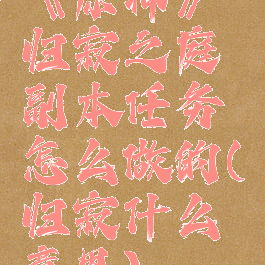 《原神》
归寂之庭
副本任务
怎么做的(
归寂什么
意思)